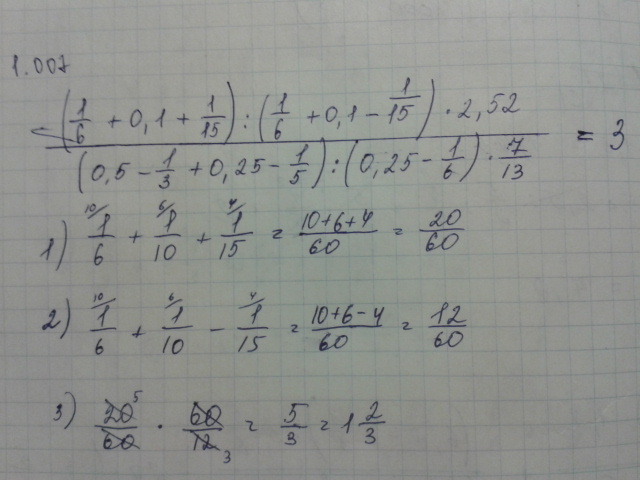 1.007
(1/6 + 0,1 + 1/15) : (1/6 + 0,1 - 1/15) · 2,52
(0,5 - 1/3 + 0,25 - 1/5) : (0,25 - 1/6) · 7/13 = 3
1) 10/ 1/6 + 6/ 1/10 + 4/ 1/15 = 10+6+4/60 = 20/60
2) 10/ 1/6 + 6/ 1/10 - 4/ 1/15 = 10+6-4/60 = 12/60
3) 20 5/60 · 60/12 3 = 5/3 = 1 2/3